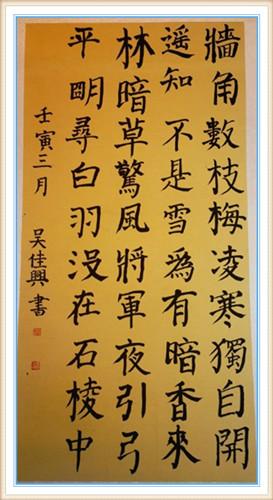 牆角數枝梅凌寒獨自開
遥知不是雪為有暗香來
林暗草驚風將軍夜引弓
平明尋白羽没在石棱中
壬寅三月
吴佳興書